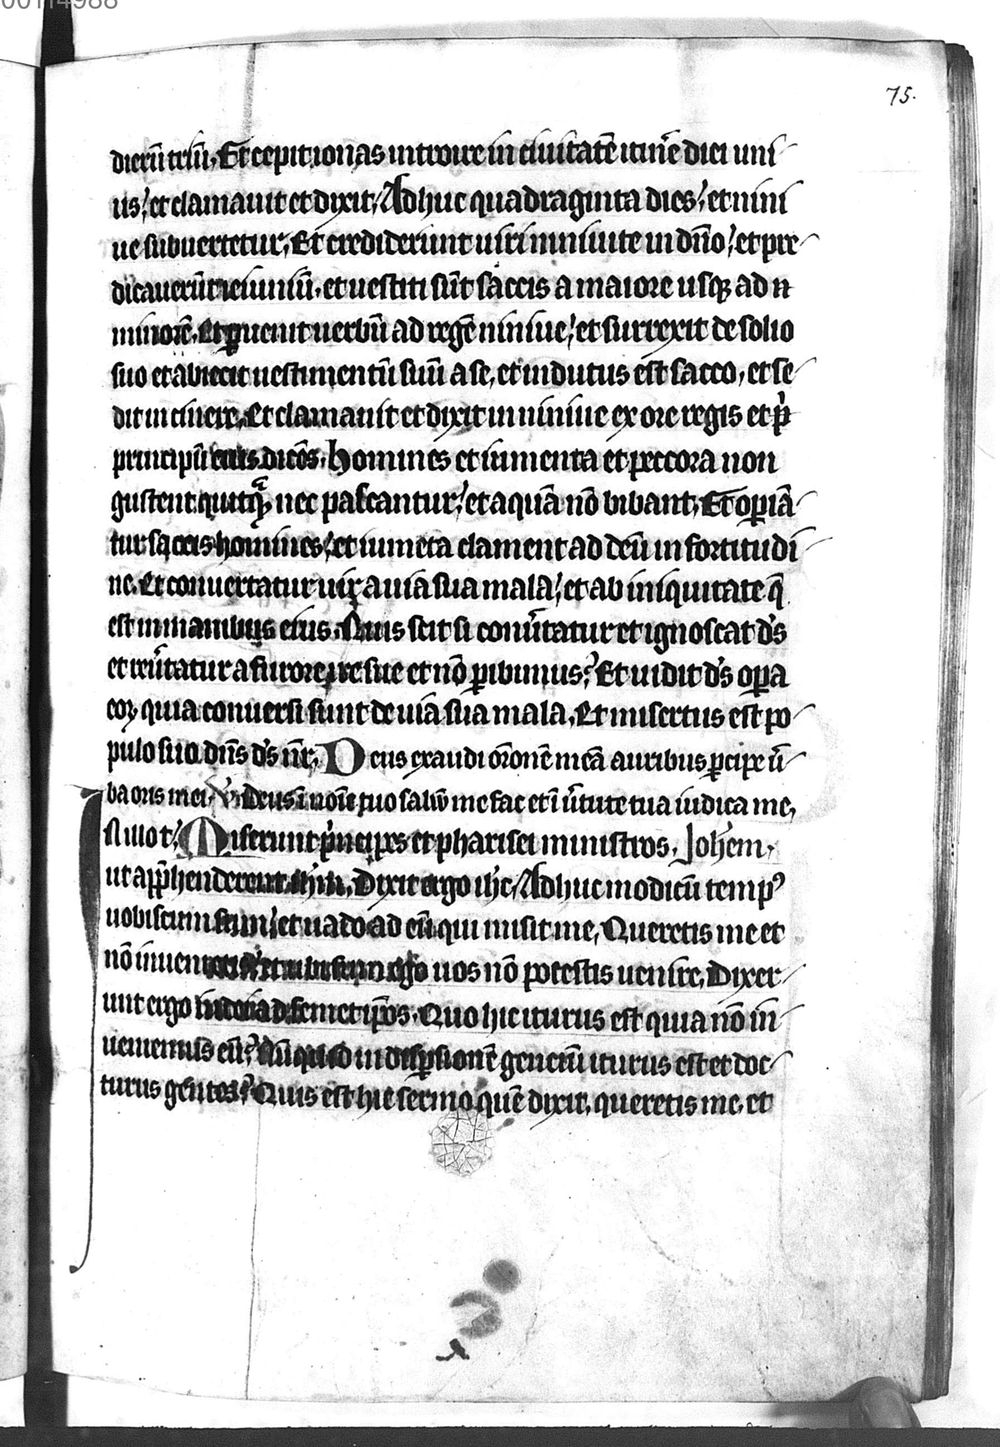 00114988
75.
dierū triū. Et cepit ionas introire in ciuitatē itinere diei uni
us / et clamauit et dixit / Adhuc quadraginta dies / et nini
ue subuertetur / Et crediderunt uiri niniuite in dn̄o / et pre
dicauerūt ieiuniū. et uestiti sūt saccis a maiore usqꝫ ad
minorē. Et ꝑuenit uerbū ad regē niniue / et surrexit de solio
suo et abiecit uestimentū suū a se, et indutus est sacco, et se
dit in cinere. Et clamauit et dixit in niniue ex ore regis et
principū eius dicēs. Homines et iumenta et peccora non
gustent quicꝗ̄ nec pascantur / et aquā nō bibant. Et oꝑiā
tur saccis homines / et iumēta clament ad deū in fortitudi
ne. Et conuertatur uir a uia sua mala / et ab iniquitate q̄
est in manibus eius. Quis scit si conūtatur et ignoscat dēs
et reūtatur a furore ire sue et nō ꝑibimus? Et uidit dēs oꝑa
eoꝝ quia conuersi sunt de uia sua mala. Et misertus est po
pulo suo dn̄s dēs nr̄. Deus exaudi orōnē meā auribus ꝑcipe ū
ba oris mei. Deus ī noīe tuo saluū me fac et ī ūtute tua iudica me,
In illo t. Miserunt pͥncipes et pharisei ministros. Johem.
ut apꝑhenderent ihm. Dixit ergo ihc / Adhuc modicū tempꝰ
uobiscum sum / et uado ad eū qui misit me, Queretis me et
nō inuenietis / et ubi sum ego uos nō potestis uenire, Dixer
unt ergo iudei ad semetiꝑos. Quo hic iturus est quia nō in
ueniemus eū? Nūquid in disꝑsionē gencium iturus est et doc
turus gentes? Quis est hic sermo quē dixit, queretis me, et